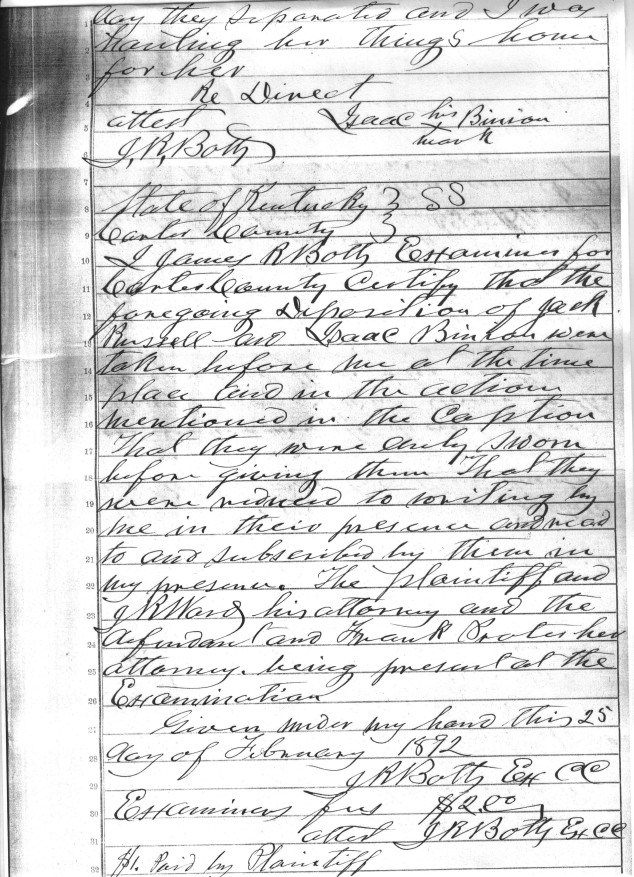 day they separated and I was
hauling her things home
for her
Re Direct
attest Isaac his Binion
mark
J. R. Botts
State of Kentucky } SS
Carter County }
I James R Botts Examiner for
Carter County Certify that the
foregoing Deposition of Jack
Russell and Isaac Binion were
taken before me at the time
place and in the action
mentioned in the Caption
That they were duly sworn
before giving them That they
were reduced to writing by
me in their presence and read
to and subscribed by them in
my presence. The plaintiff and
J R Ward his attorney and the
defendant and Frank Prater her
attorney. being present at the
Examination
Given under my hand this 25
day of February 1892
J R Botts Ex CC
Examiners fees $2.00
attest J R Botts Ex CC
Paid by Plaintiff
1
2
3
4
5
6
7
8
9
10
11
12
13
14
15
16
17
18
19
20
21
22
23
24
25
26
27
28
29
30
31
32